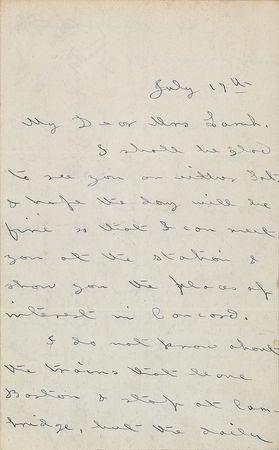 July 17th
My Dear Mrs Lamb.
I shall be glad
to see you on either Sat
& hope the day will be
fine so that I can meet
you at the station &
show you the places of
interest in Concord.
I do not know about
the trains that leave
Boston & stop at Cam
bridge, but the daily